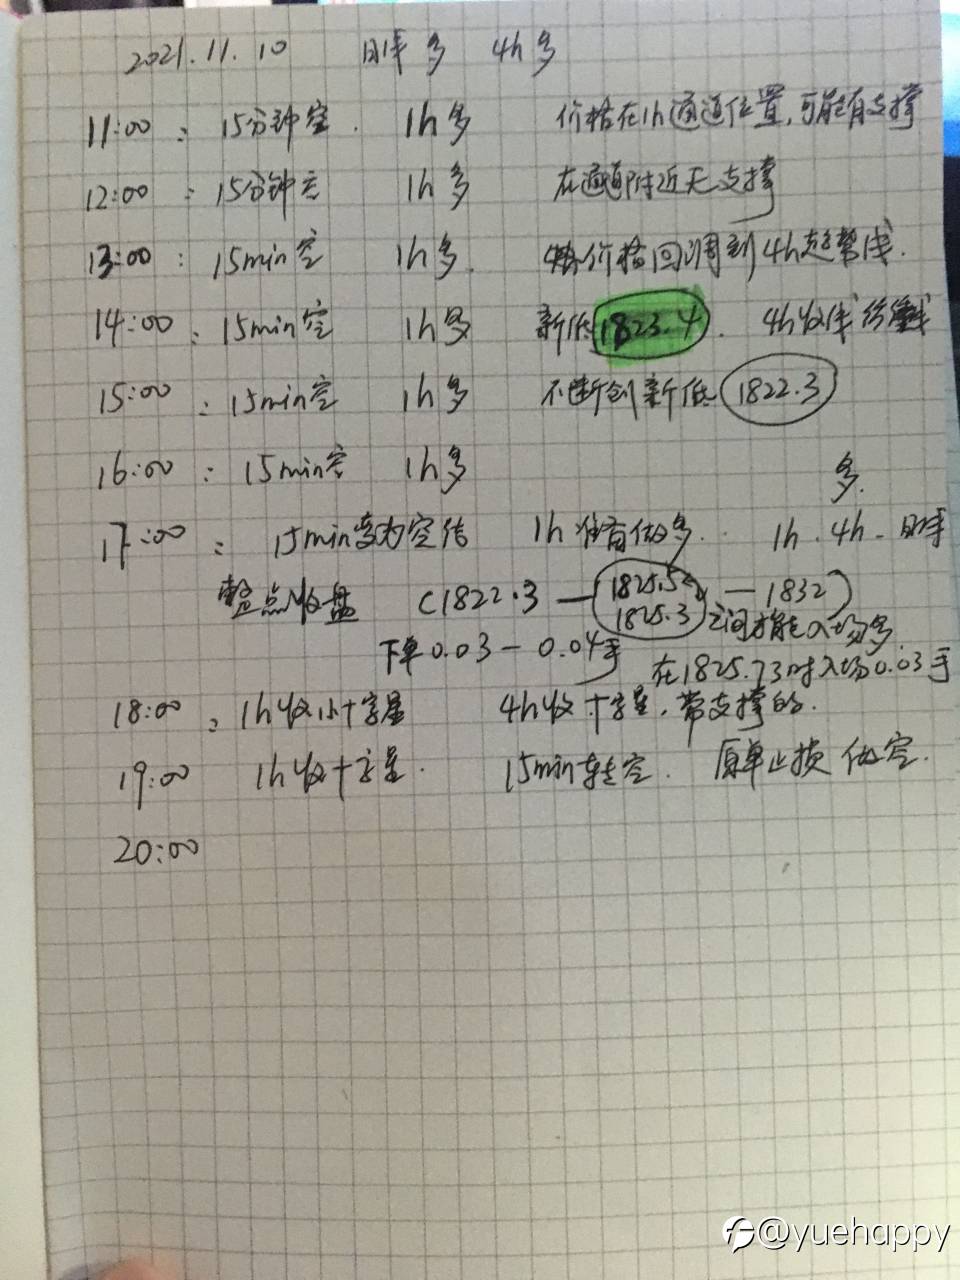 2021.11.10 日线多 4h多
11:00 : 15分钟空. 1h多 价格在1h通道位置,可能有支撑
12:00 : 15分钟空 1h多 在通道附近无支撑
13:00 : 15min空 1h多. 价格回调到4h趋势线.
14:00 : 15min空 1h多 新低1823.4. 4h收线
15:00 : 15min空 1h多 不断创新低 1822.3
16:00 : 15min空 1h多
多.
17:00 : 15min变为空 1h 做多. 1h.4h-日线
整点收盘 (1822.3 — 1825.5 — 1832)
1825.3 之间才能入场多.
下单0.03-0.04手 在1825.73时入场0.03手
18:00 : 1h收小十字星 4h收十字星,带支撑的.
19:00 1h收十字星. 15min转空. 原单止损 做空.
20:00
@yuehappy